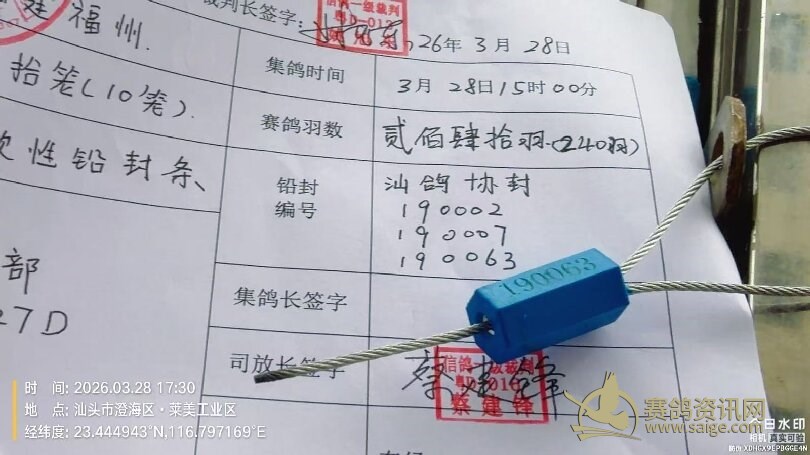 裁判长签字:
信鸽一级裁判
26年 3月 28日
福州.
集鸽时间
3月 28日15时00分
拾笼(10笼).
赛鸽羽数
贰佰肆拾羽.(240羽)
性铅封条、
铅封
编号
汕鸽协封
190002
190007
190063
部
27D
190063
集鸽长签字
司放长签字
信鸽一级裁判
蔡建锋
时 间: 2026.03.28 17:30
地 点: 汕头市澄海区·莱美工业区
经纬度: 23.444943°N,116.797169°E
赛鸽资讯网
www.saige.com
今日水印
相机 真实可验